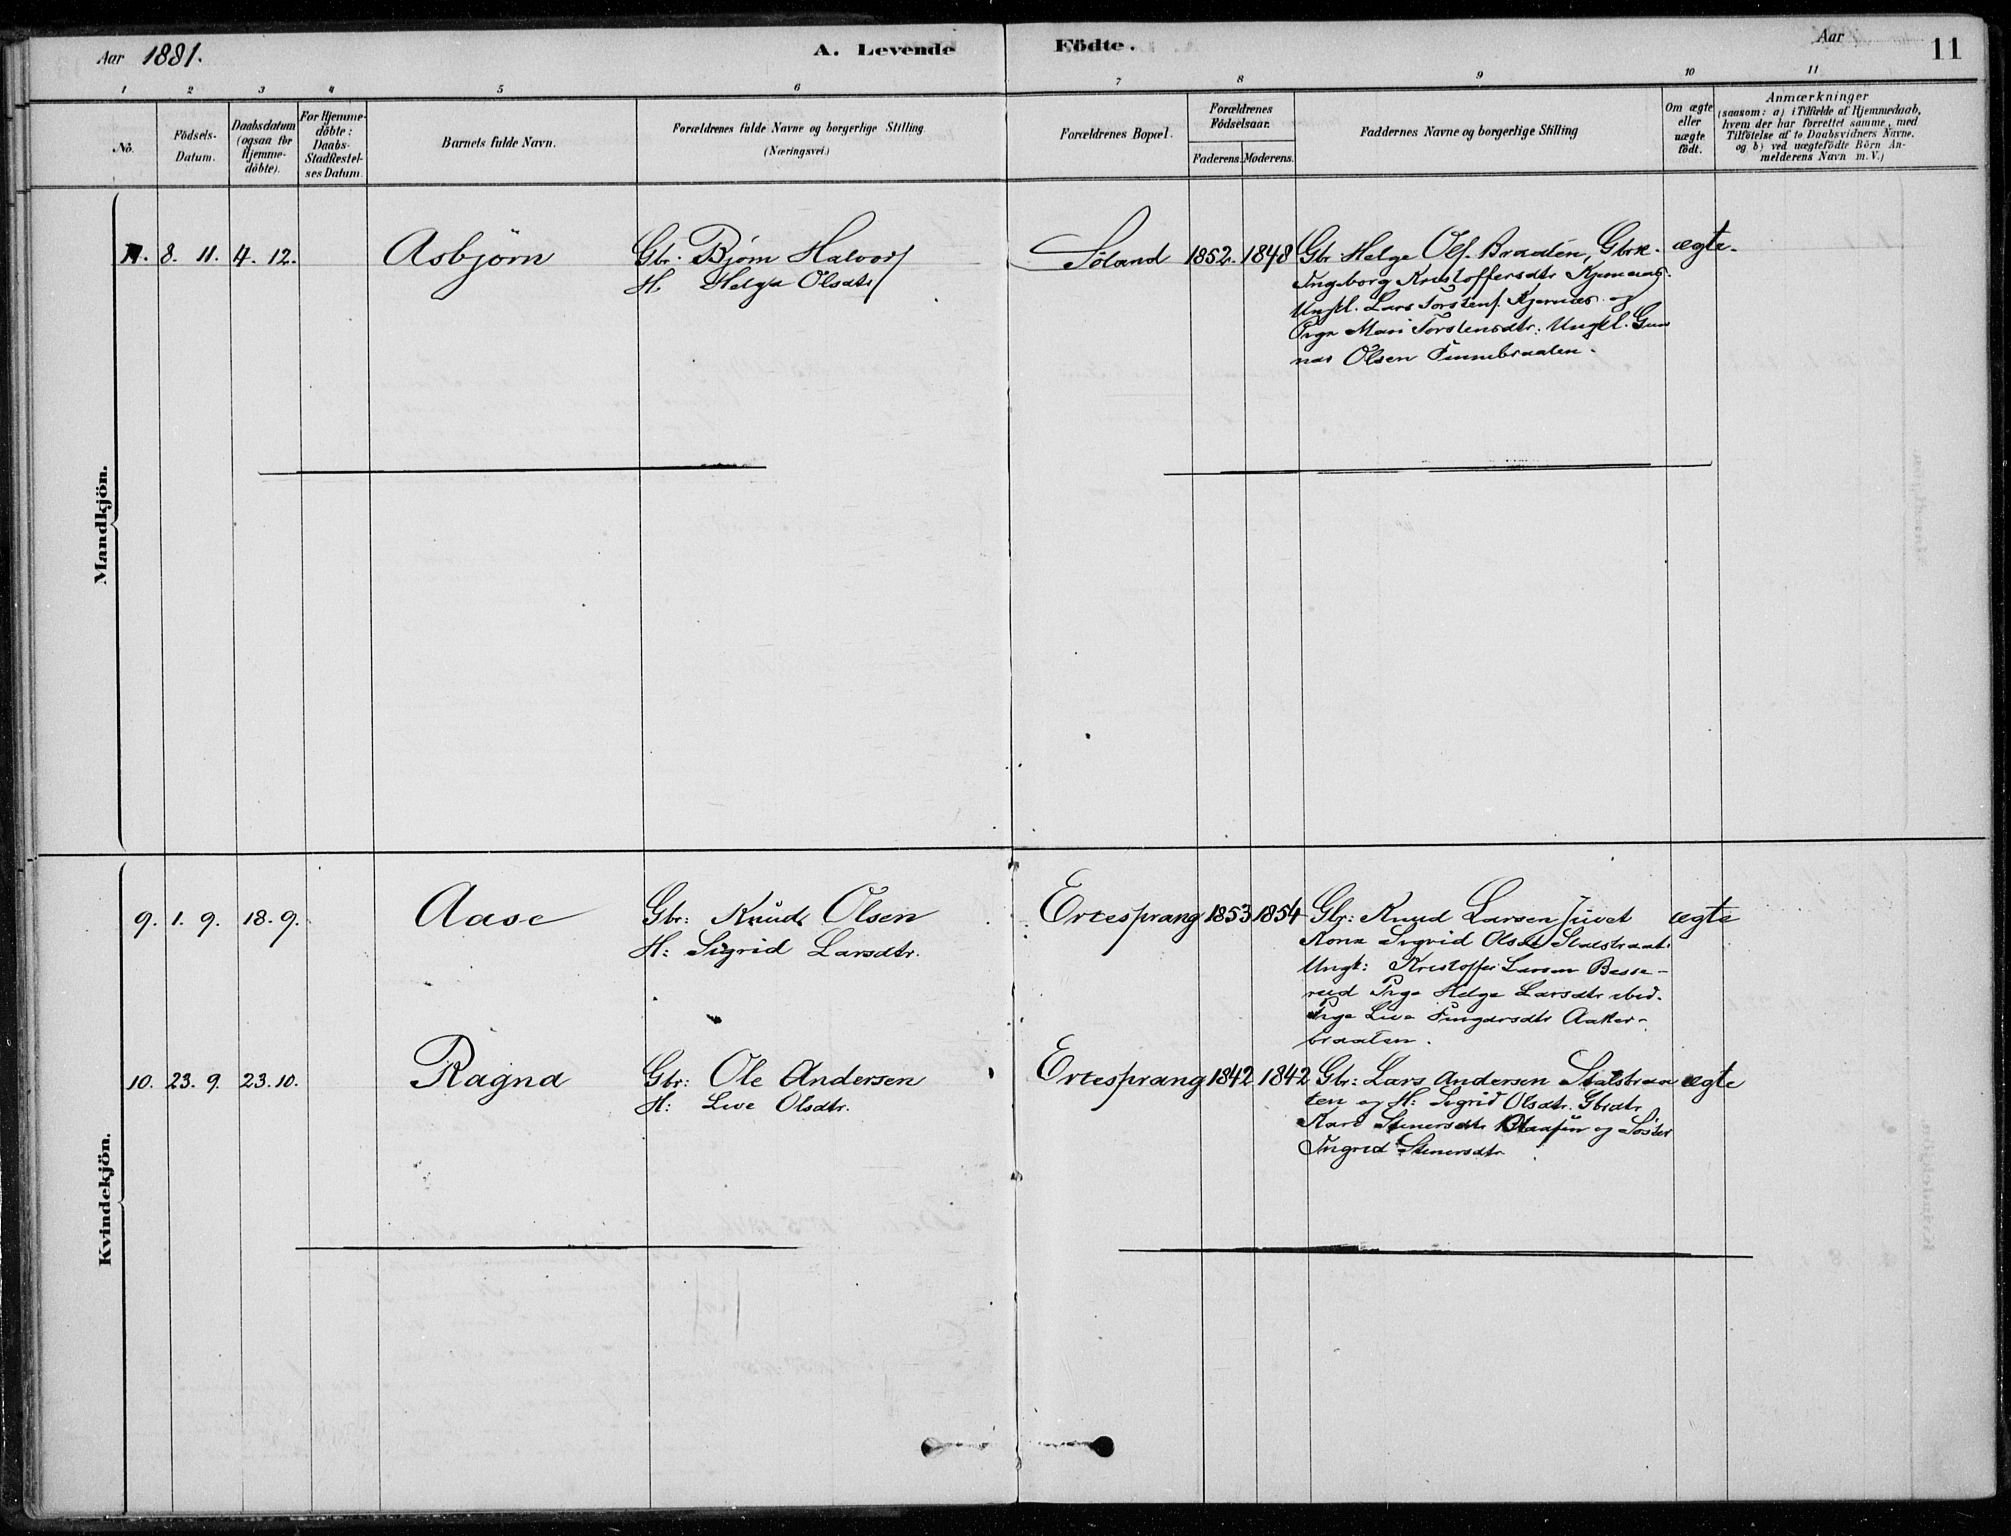 Aar 1881.
A. Levende Födte.
Aar
11
1 2 3 4 5 6 7 8 9 10 11
No.
Födsels-
Datum.
Daabsdatum
(ogsaa for
Hjemme-
döbte).
For Hjemme-
döbte:
Daabs-
Stadfæstel-
ses Datum.
Barnets fulde Navn.
Forældrenes fulde Navne og borgerlige Stilling
(Næringsvei.)
Forældrenes Bopæl.
Forældrenes
Födselsaar.
Faderens. Moderens.
Faddernes Navne og borgerlige Stilling
Om ægte
eller
uægte
födt.
Anmærkninger
(saasom: a) i Tilfælde af Hjemmedaab,
hvem der har forrettet samme, med
Tilföielse af to Daabsvidners Navne.
og b) ved uægtefödte Börn An-
melderens Navn m.V.)
Mandkjön.
11. 8. 11. 4. 12. Asbjörn Gbr. Bjørn Halvors
H. Helga Olsdtr
Søland 1852. 1848 Gbr Helge Ols. Braaten, Gbrk. ægte.
Ingeborg Kristoffersdtr
Ungk. Lars Torstens. Kjernæs og
Pige Mari Torstensdtr: Ungk. Gun
nar Olsen Finnebraaten.
Kvindekjön.
9. 1. 9. 18. 9. Aase Gbr: Knud Olsen
H: Sigrid Larsdtr.
Ertesprang 1853 1854 Gbr: Knud Larsen Juvet ægte
Kone Sigrid Olsdt
Ungk: Kristoffer Larsen Besse-
rud Pige Helga Larsdtr ibid.
Pige Live Fingarsdtr Aaker-
braaten.
10. 23. 9. 23. 10. Ragna Gbr: Ole Andersen
H: Live Olsdtr.
Ertesprang 1842 1842 Gbr: Lars Andersen Stalstraa ægte
ten og H: Sigrid Olsdtr. Gbrdtr
Kari Stenersdtr og Søster
Ingrid Stenersdtr